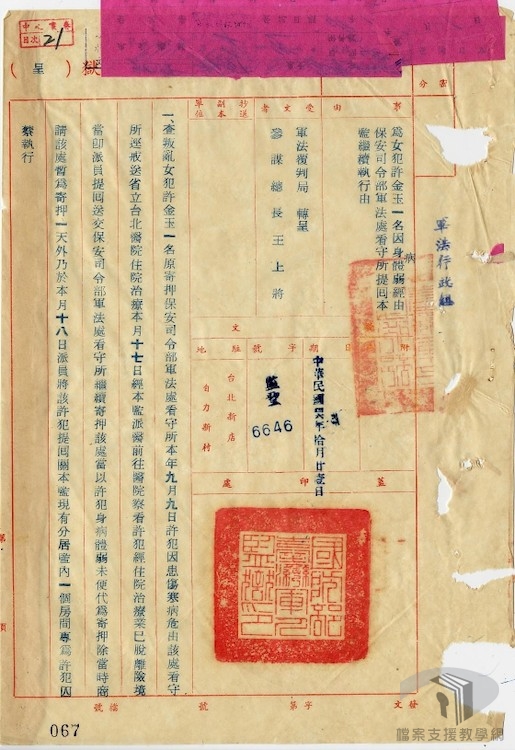 中心電卷
目次 21
獄
(呈)
區分
事由
受文者
抄送副本單位
為女犯許金玉一名因身體弱經由
病
保安司令部軍法處看守所提囘本
監繼續執行由
軍法行政組
軍法覆判局 轉呈
參謀總長王上將
附
日期
中華民國年拾月廿壹日
字號
監堅
6646
文
駐地
台北新店
自力新村
蓋印處
一、查叛亂女犯許金玉一名原寄押保安司令部軍法處看守所本年九月九日許犯因患傷寒病危由該處看守
所逕戒送省立台北醫院住院治療本月十七日經本監派醫前往醫院察看許犯經住院治療業已脫離險境
當即派員提囘送交保安司令部軍法處看守所繼續寄押該處當以許犯身病體弱未便代為寄押除當時商
請該處暫為寄押一天外乃於本月十八日派員將該許犯提囘關本監現有分居監內一個房間專為許犯囚
禁執行
國防部
臺灣軍人
監獄印
發文
字第
號
檔號
067
檔案支援教學網